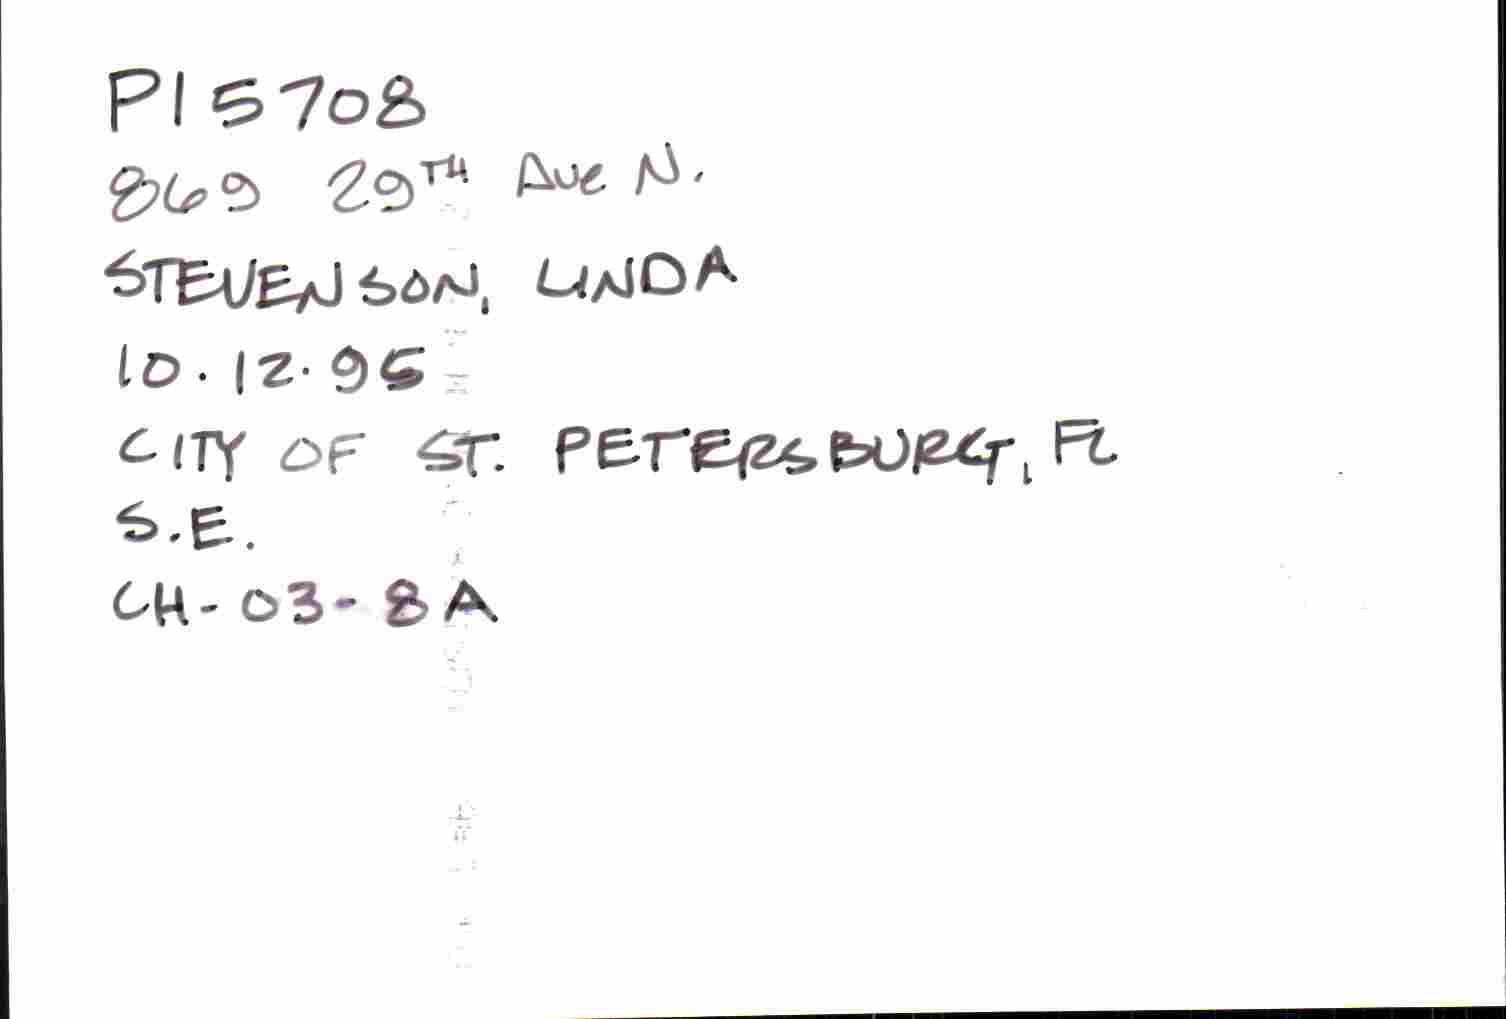 PI 5708
869 29TH Ave N.
STEVENSON, LINDA
10.12.95
CITY OF ST. PETERSBURG, FL
S.E.
CH-03-8A